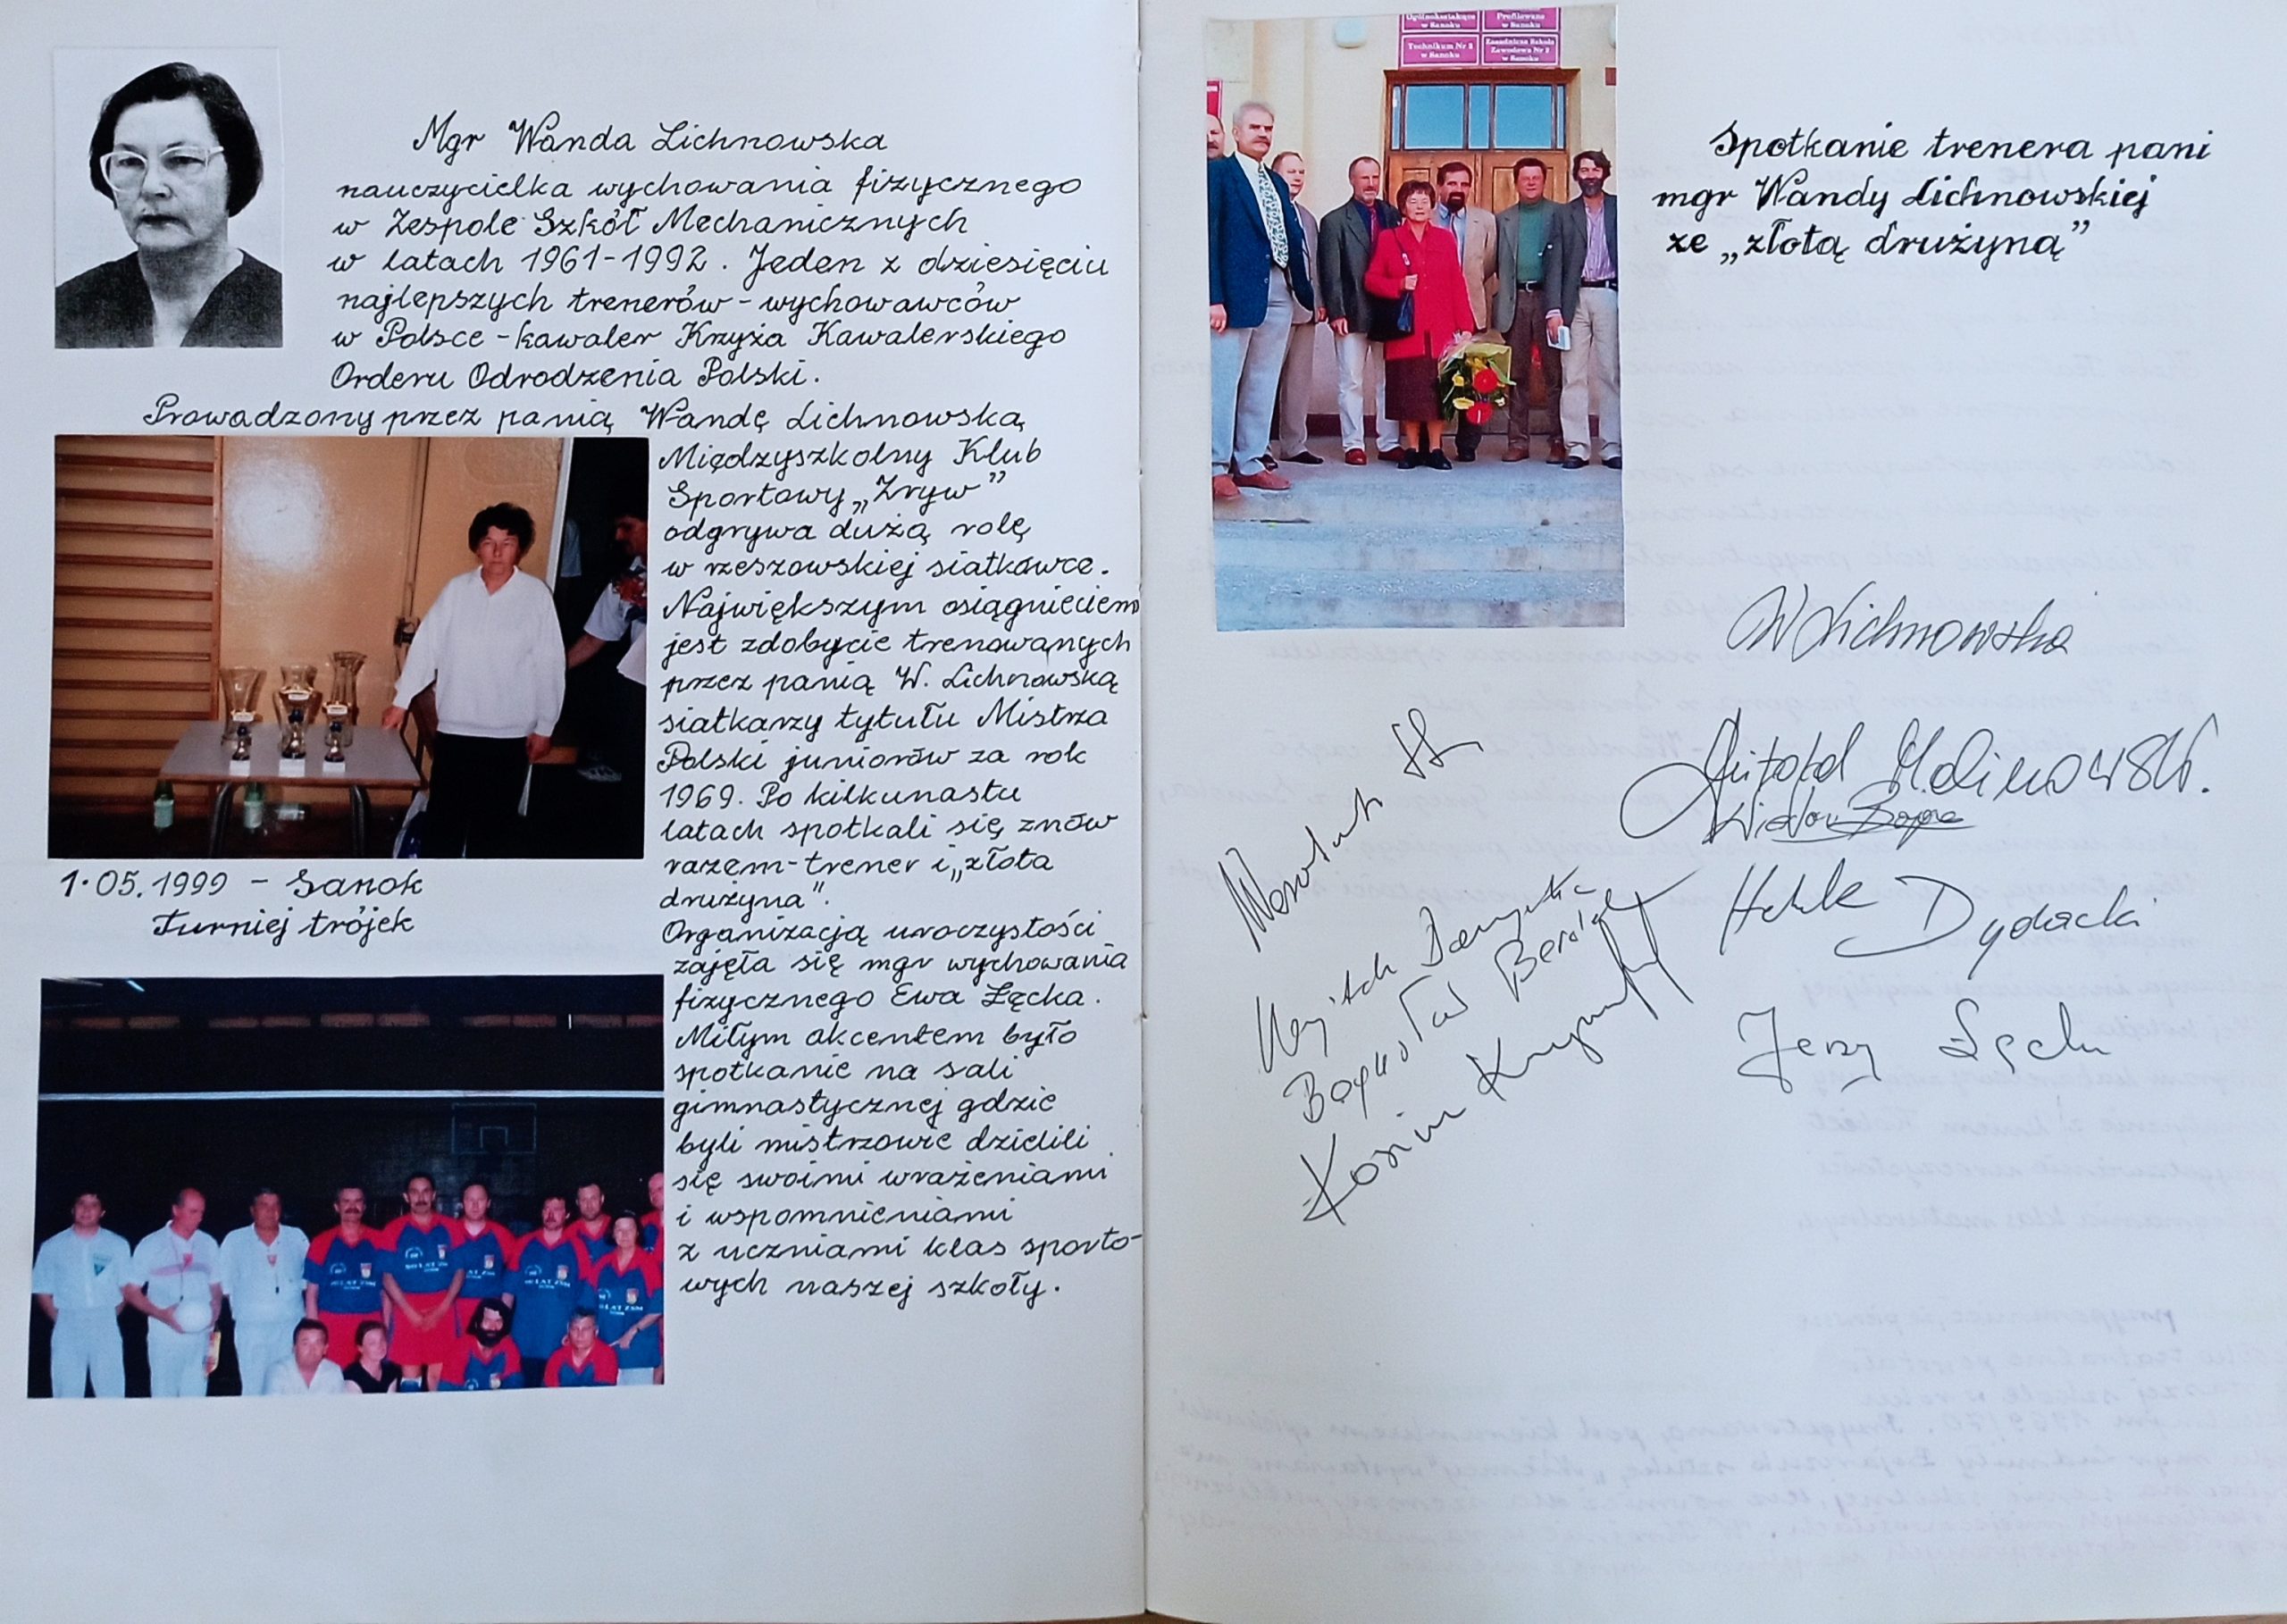 Mgr Wanda Lichnowska
nauczycielka wychowania fizycznego
w Zespole Szkół Mechanicznych
w latach 1961-1992. Jeden z dziesięciu
najlepszych trenerów - wychowawców
w Polsce - kawaler Krzyża Kawalerskiego
Orderu Odrodzenia Polski.
Prowadzony przez panią Wandę Lichnowską
Międzyszkolny Klub
Sportowy „Zryw”
odgrywa dużą rolę
w rzeszowskiej siatkówce.
Największym osiągnięciem
jest zdobycie trenowanych
przez panią W. Lichnowską
siatkarzy tytułu Mistrza
Polski juniorów za rok
1969. Po kilkunastu
latach spotkali się znów
razem - trener i „złota
drużyna”.
Organizacją uroczystości
zajęła się mgr wychowania
fizycznego Ewa Łęcka.
Miłym akcentem było
spotkanie na sali
gimnastycznej gdzie
byli mistrzowie dzielili
się swoimi wrażeniami
i wspomnieniami
z uczniami klas sporto-
wych naszej szkoły.
1.05.1999 - Sanok
Turniej trójek
50 LAT ZSM
Ogólnokształcące
w Sanoku
Profilowane
w Sanoku
Technikum Nr 2
w Sanoku
Zasadnicza Szkoła
Zawodowa Nr 2
w Sanoku
Spotkanie trenera pani
mgr Wandy Lichnowskiej
ze „złotą drużyną”
W Lichnowska
Witold Malinowski
Dydacki
Jerzy
Bogusław